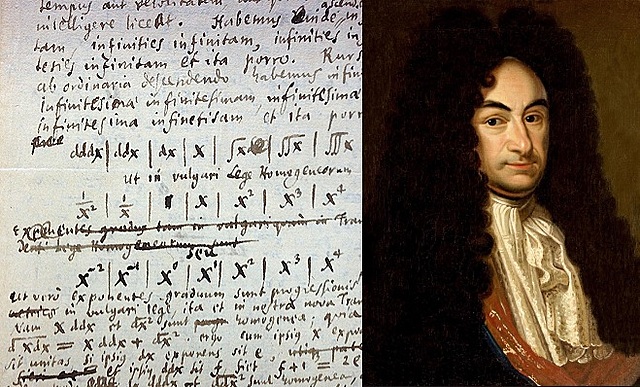 tempus aut velocitatem
intelligere liceat. Habemus
tam, infinities infinitam, infinities in
ties infinitam et ita porro. Rurs
ab ordinaria descendendo habemus infini
infinitesima infinitesimam, infinitesima
infinitesima infinetisam et ita porr
dddx | ddx | dx | x | ∫x | ∫∫x | ∫∫∫x
ut in vulgari Lege Homogeneorum
1/x² | 1/x | | x | x² | x³ | x⁴
seu
x⁻² | x⁻¹ | x⁰ | x¹ | x² | x³ | x⁴
ut vero exponentes graduum sunt progressionis
in vulgari lege, ita et in nostra nova Tran
x ddx et dx² sunt homogenea,
xdx = x ddx + dx². ergo cum ipsius x expo
sit unitas si ipsius dx exponens sit e,
et ipsius ddx sit f, fiet f + 1 = 2e
sunt homogenea,